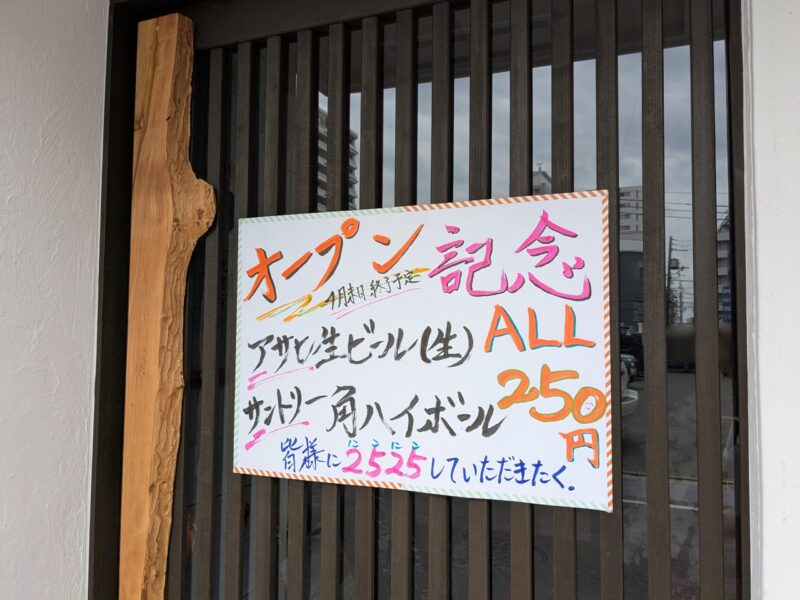 オープン記念
4月末日終了予定
アサヒ生ビール(生)
サントリー角ハイボール
ALL
250
円
にこにこ
皆様に2525していただきたく。